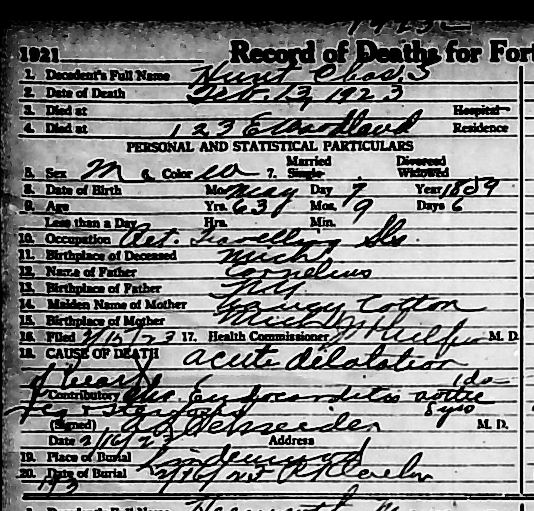 1921 Record of Deaths for Fort
1. Decedent's Full Name Hunt Chas. S
2. Date of Death Feb. 13, 1923
3. Died at Hospital
4. Died at 123 E Woodland Residence
PERSONAL AND STATISTICAL PARTICULARS
5. Sex M & Color 7. Married Single Divorced Widowed
8. Date of Birth Mo. May Day 7 Year 1859
9. Age Yrs. 63 Mos. 9 Days 6
Less than a Day Hrs. Min.
10. Occupation Ret. Travelling Sls.
11. Birthplace of Deceased Mich
12. Name of Father Cornelius
13. Birthplace of Father N.Y.
14. Maiden Name of Mother Cotton
15. Birthplace of Mother Mich
16. Filed 2/15/23 17. Health Commissioner M. D.
18. CAUSE OF DEATH acute dilatation
of heart 1 da
Contributory Chr. Endocarditis aortic
Reg & Stenosis 8 yrs
(Signed) Schneider M. D.
Date 2/16/23 Address
19. Place of Burial Lindenwood
20. Date of Burial 2/16/23